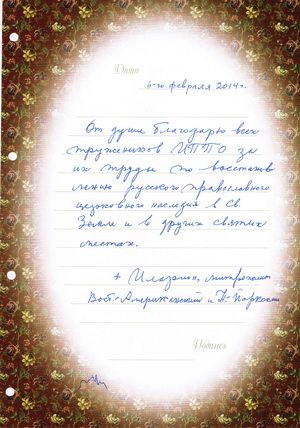 Дата
6-го февраля 2014 г.
От души благодарю всех
тружеников ИППО за
их труды по восстанов
лению русского православного
церковного наследия в Св.
Земле и в других святых
местах.
+ Иларион, митрополит
Вост.-Американский и Н-Йоркский
Подпись